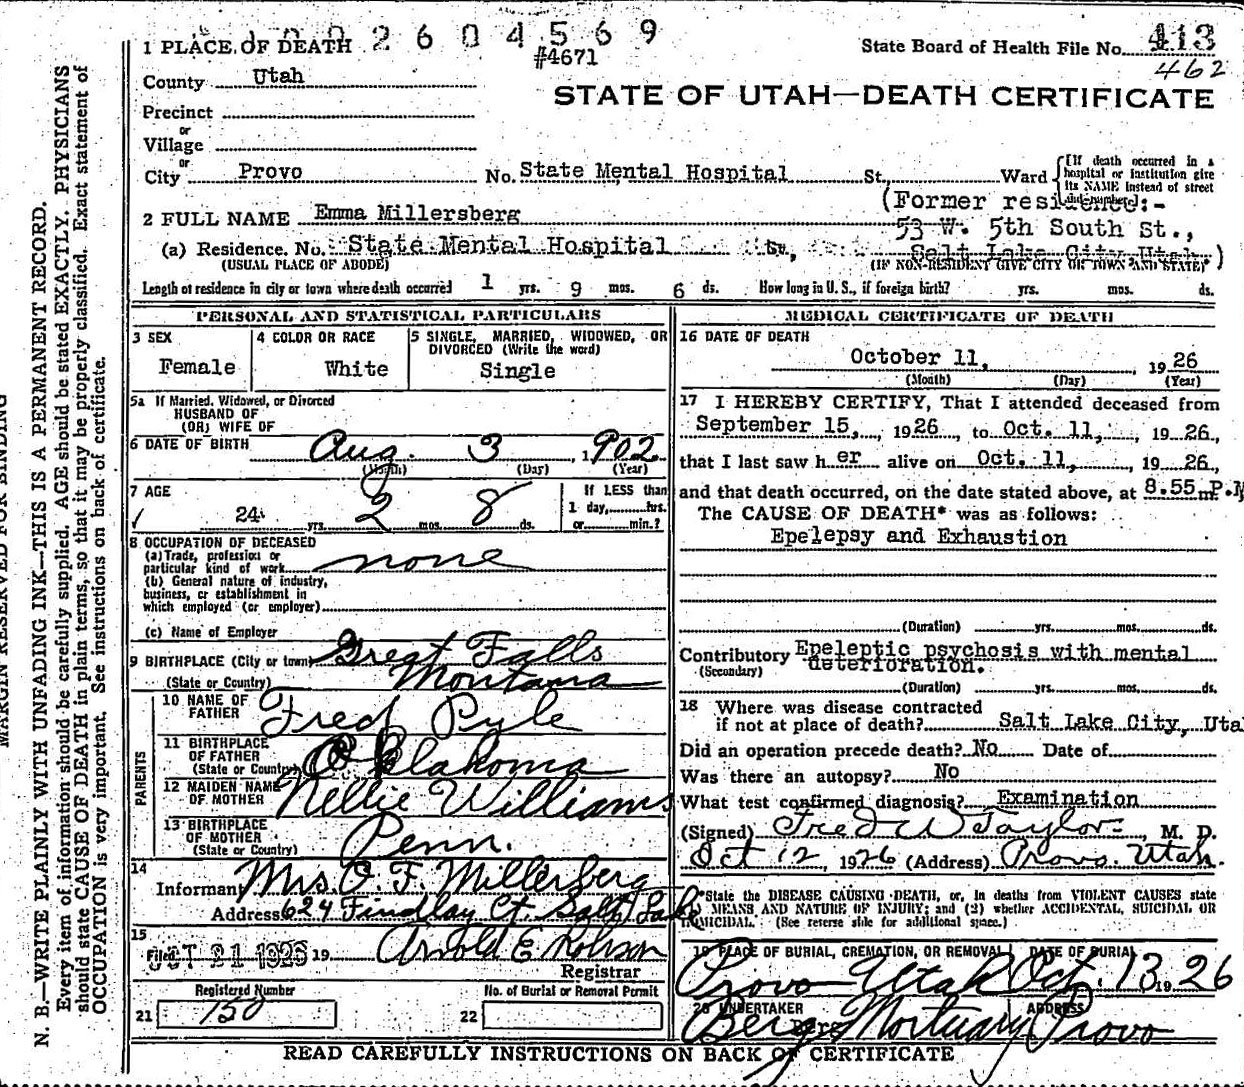 1 0 0 2 6 0 4 5 6 9
#4671
State Board of Health File No. 413
462
STATE OF UTAH—DEATH CERTIFICATE
1 PLACE OF DEATH
County Utah
Precinct
or
Village
or
City Provo No. State Mental Hospital St. Ward
{If death occurred in a hospital or institution give its NAME instead of street
2 FULL NAME Emma Millersberg
(Former residence:-
53 W. 5th South St.,
Salt Lake City, Utah.)
(a) Residence. No. State Mental Hospital St.,
(USUAL PLACE OF ABODE) (IF NON-RESIDENT GIVE CITY OR TOWN AND STATE)
Length of residence in city or town where death occurred 1 yrs. 9 mos. 6 ds. How long in U. S., if foreign birth? yrs. mos. ds.
PERSONAL AND STATISTICAL PARTICULARS
3 SEX
Female
4 COLOR OR RACE
White
5 SINGLE, MARRIED, WIDOWED, OR
DIVORCED (Write the word)
Single
5a If Married, Widowed, or Divorced
HUSBAND OF
(OR) WIFE OF
6 DATE OF BIRTH Aug. 3 1902
(Month) (Day) (Year)
7 AGE
24 yrs. 2 mos. 8 ds.
If LESS than
1 day, hrs.
or min.?
8 OCCUPATION OF DECEASED
(a) Trade, profession or
particular kind of work none
(b) General nature of industry,
business, or establishment in
which employed (or employer)
(c) Name of Employer
9 BIRTHPLACE (City or town) Great Falls
(State or Country) Montana
PARENTS
10 NAME OF
FATHER Fred Pyle
11 BIRTHPLACE
OF FATHER
(State or Country) Oklahoma
12 MAIDEN NAME
OF MOTHER Nellie Williams
13 BIRTHPLACE
OF MOTHER
(State or Country) Penn.
14
Informant Mrs. O. F. Millerberg
Address 624 Findlay Ct. Salt Lake
15
Filed OCT 21 1926 19 Arnold E Robison
Registrar
Registered Number
21 150
No. of Burial or Removal Permit
22
MEDICAL CERTIFICATE OF DEATH
16 DATE OF DEATH
October 11, 1926
(Month) (Day) (Year)
17 I HEREBY CERTIFY, That I attended deceased from
September 15, 1926, to Oct. 11, 1926,
that I last saw her alive on Oct. 11, 1926,
and that death occurred, on the date stated above, at 8.55 m P.M
The CAUSE OF DEATH* was as follows:
Epelepsy and Exhaustion
(Duration) yrs. mos. ds.
Contributory Epeleptic psychosis with mental
(Secondary) deterioration.
(Duration) yrs. mos. ds.
18 Where was disease contracted
if not at place of death? Salt Lake City, Uta
Did an operation precede death? No Date of
Was there an autopsy? No
What test confirmed diagnosis? Examination
(Signed) Fred W Taylor, M. D.
Oct 12, 1926 (Address) Provo. Utah.
*State the DISEASE CAUSING DEATH, or, in deaths from VIOLENT CAUSES state
MEANS AND NATURE OF INJURY; and (2) whether ACCIDENTAL, SUICIDAL OR
HOMICIDAL. (See reverse side for additional space.)
19 PLACE OF BURIAL, CREMATION, OR REMOVAL DATE OF BURIAL
Provo Utah Oct. 13 1926
20 UNDERTAKER ADDRESS
Berg Mortuary Provo
READ CAREFULLY INSTRUCTIONS ON BACK OF CERTIFICATE
MARGIN RESERVED FOR BINDING
N. B.—WRITE PLAINLY WITH UNFADING INK—THIS IS A PERMANENT RECORD.
Every item of information should be carefully supplied. AGE should be stated EXACTLY. PHYSICIANS
should state CAUSE OF DEATH in plain terms, so that it may be properly classified. Exact statement of
OCCUPATION is very important. See instructions on back of certificate.